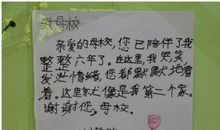 致母校
亲爱的母校,您已陪伴了我
整整六年了。在这里,我哭笑
发泄情绪,您都默默地看
着。这里就像是我第二个家。
谢谢您,母校。